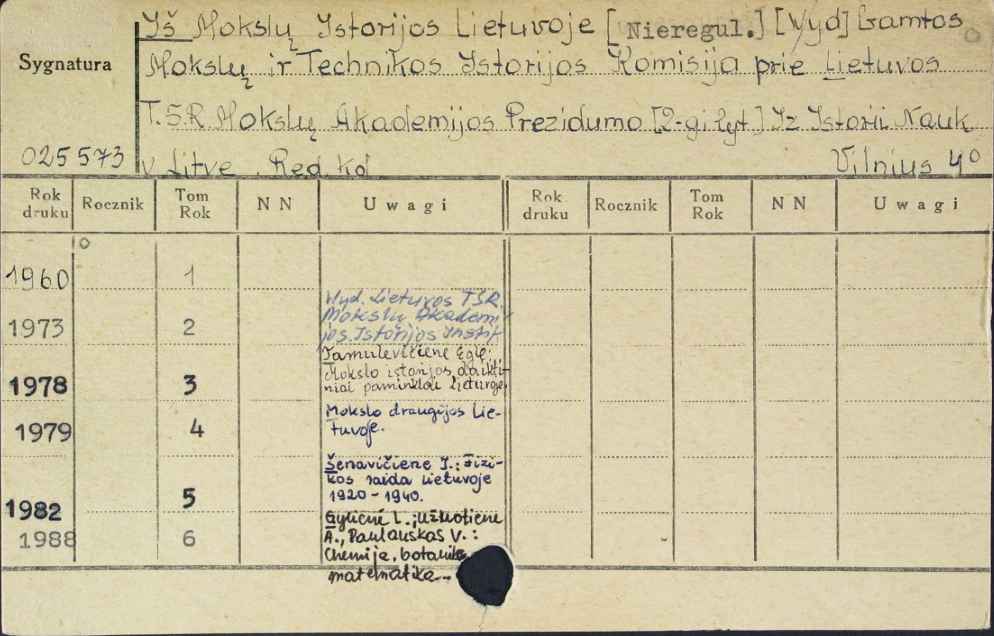 Iš Mokslų Istorijos Lietuvoje [Nieregul.] [Wyd] Gamtos
Sygnatura
Mokslų ir Technikos Istorijos Komisija prie Lietuvos
T.S.R Mokslų Akademijos Prezidumo [2-gi tyt] Iz Istorii Nauk
025573 v Litve . Red. kol Vilnius 4°
Rok druku Rocznik Tom Rok NN Uwagi Rok druku Rocznik Tom Rok NN Uwagi
1960 1
Wyd. Lietuvos TSR.
Mokslų Akademi-
1973 2
jos. Istorijos Instit
Tamulevičiene Eglė:
Mokslo istorijos daikti-
1978 3
niai paminklai Lietuvoje.
Mokslo draugijos Lie-
1979 4
tuvoje.
Šenavičiene I.: Fizi-
kos raida Lietuvoje
1920 - 1940.
1982 5
Gylienė L.;
A., Paulauskas V.:
1988 6
Chemija, botanika,
matematika..